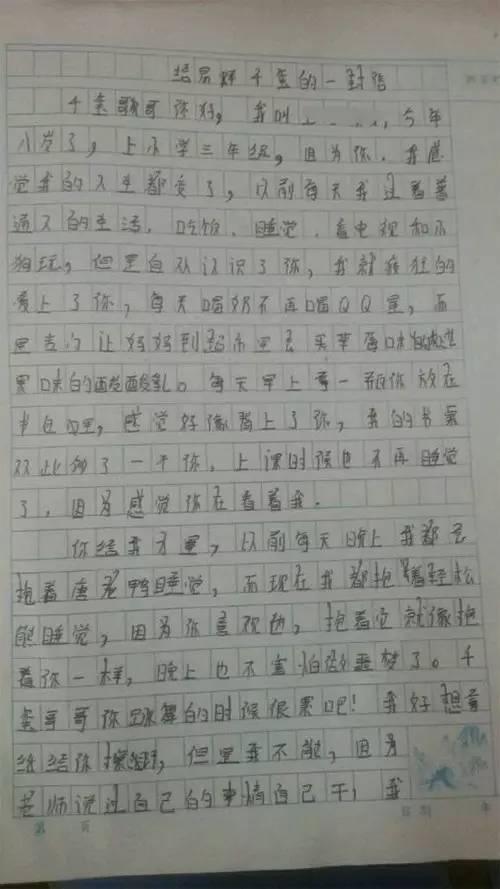 给易烊千玺的一封信
千玺哥哥你好，我叫....，今年
八岁了，上小学三年级，因为你，我感
觉我的人生都变了，以前每天我过着着
通人的生活，吃饭、睡觉、看电视和小
狗玩，但是自从认识了你，我就疯狂的
爱上了你，每天喝奶不再喝QQ星，而
是去让妈妈到超市里去买苹果味的
果味的酸酸乳。每天早上拿一瓶你放在
书包里，感觉好像背上了你，我的书桌
从此多了一个你，上课时候也不再睡觉
了，因为感觉你在看着我.
你给我力量，以前每天晚上我都会
抱着唐老鸭睡觉，而现在我都抱着轻松
熊睡觉，因为你喜欢他，抱着它就像抱
着你一样，晚上也不害怕做噩梦了。千
玺哥哥你跳舞的时候很累吧！我好想拿
纸给你擦，但是我不能，因为
老师说过自己的事情自己干，我
第 页